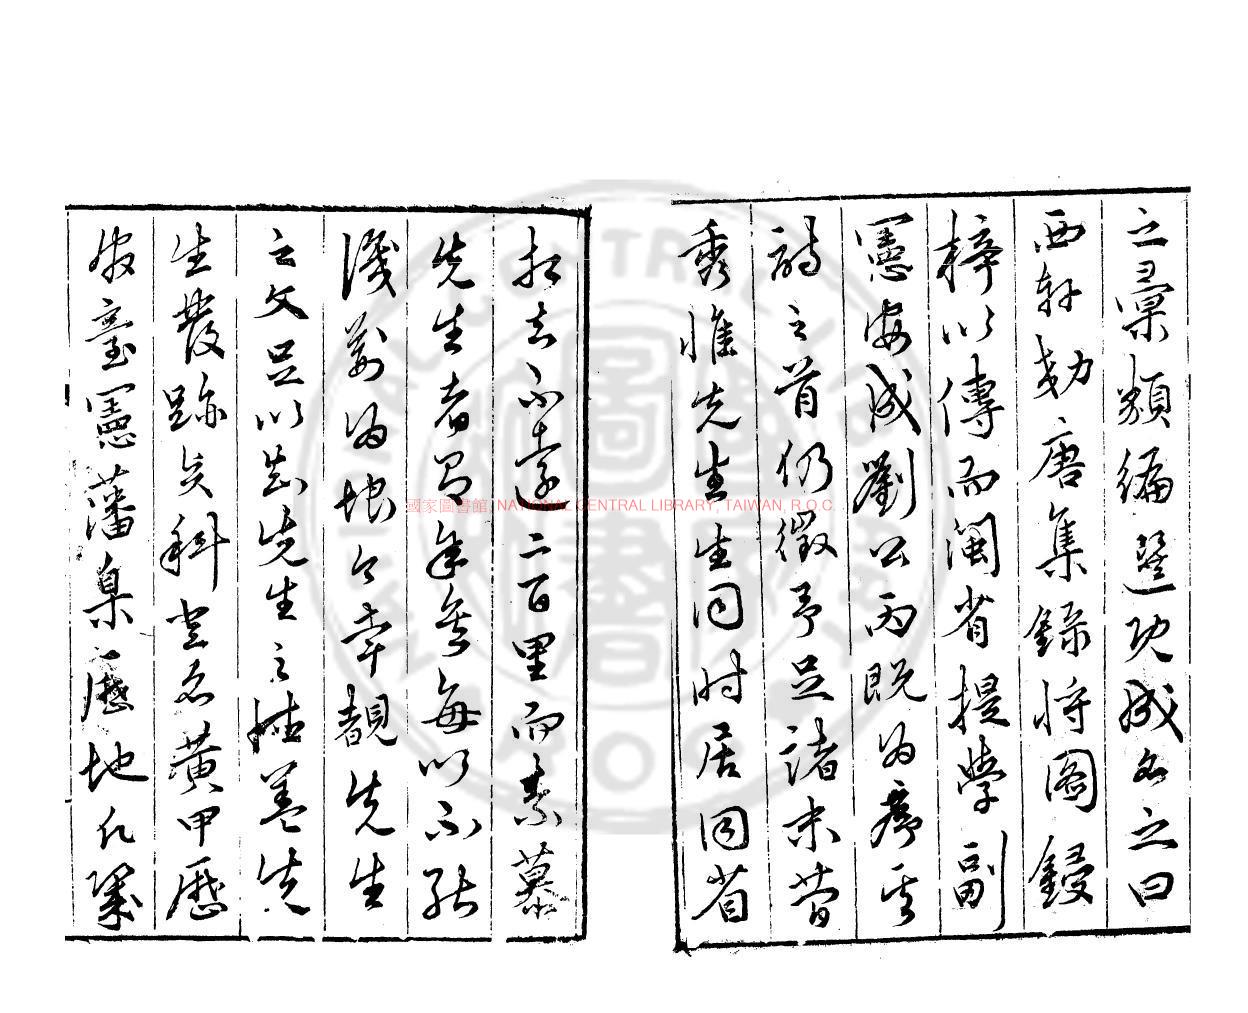 之彙類編選既成名之曰
西軒効唐集錄將圖鋟
梓以傳而閩省提學副
憲安成劉公丙既為序
詩之首仍徵予足諸末昔
秀惟先生生同时居同省
相去不遠二百里而素慕
先生者有年矣每以不能
識荆為恨今幸覩先生
之文足以知先生之
生發跡矣科登名黃甲歷
臺憲藩臬歷地凡幾
國家圖書館, NATIONAL CENTRAL LIBRARY, TAIWAN, R.O.C.